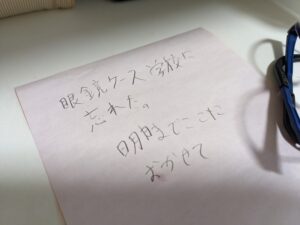 眼鏡ケース学校に
忘れた。
明日までここに
おかせて